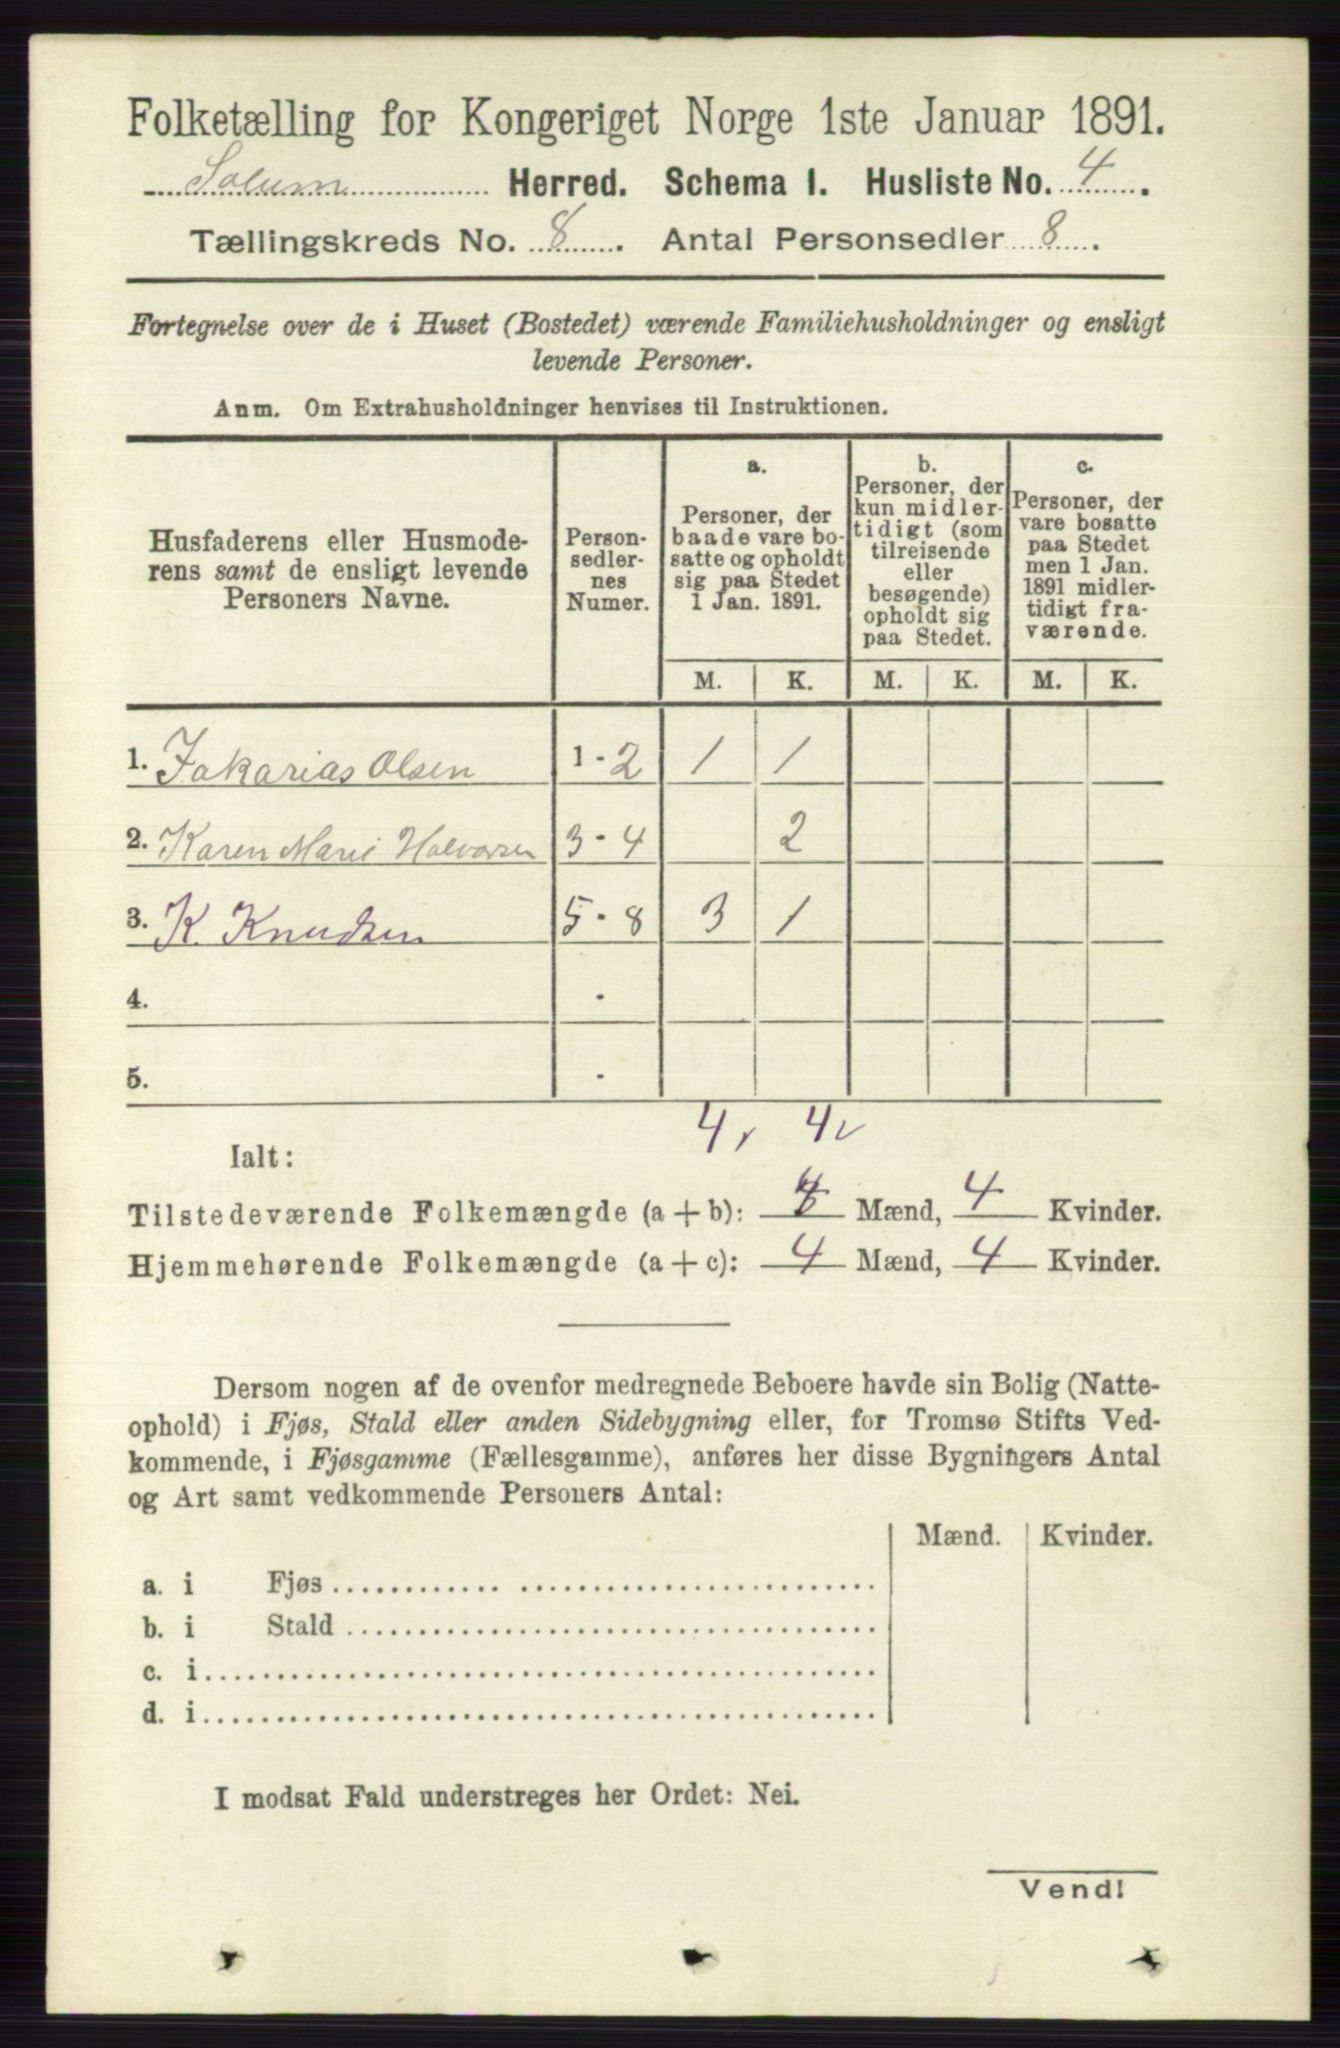 Folketælling for Kongeriget Norge 1ste Januar 1891.
Solum Herred. Schema 1. Husliste No. 4.
Tællingskreds No. 8. Antal Personsedler 8.
Fortegnelse over de i Huset (Bostedet) værende Familiehusholdninger og ensligt
levende Personer.
Anm. Om Extrahusholdninger henvises til Instruktionen.
Husfaderens eller Husmode-
rens samt de ensligt levende
Personers Navne.
Person-
sedler-
nes
Numer.
a.
Personer, der
baade vare bo-
satte og opholdt
sig paa Stedet
1 Jan. 1891.
b.
Personer, der
kun midler-
tidigt (som
tilreisende
eller
besøgende)
opholdt sig
paa Stedet.
c.
Personer, der
vare bosatte
paa Stedet
men 1 Jan.
1891 midler-
tidigt fra-
værende.
M. K. M. K. M. K.
1. Zakarias Olsen 1 - 2 1 1
2. Karen Marie Halvorsen 3 - 4 2
3. K. Knudsen 5 - 8 3 1
4. -
5. -
4 4
Ialt:
Tilstedeværende Folkemængde (a + b): 4 Mænd, 4 Kvinder.
Hjemmehørende Folkemængde (a + c): 4 Mænd, 4 Kvinder.
Dersom nogen af de ovenfor medregnede Beboere havde sin Bolig (Natte-
ophold) i Fjøs, Stald eller anden Sidebygning eller, for Tromsø Stifts Ved-
kommende, i Fjøsgamme (Fællesgamme), anføres her disse Bygningers Antal
og Art samt vedkommende Personers Antal:
Mænd. Kvinder.
a. i Fjøs
b. i Stald
c. i
d. i
I modsat Fald understreges her Ordet: Nei.
Vend!